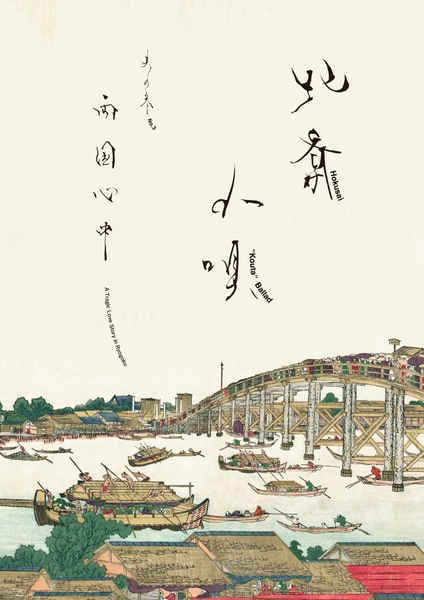 北斎
Hokusai
小唄
"Kouta" Ballad
其の参
No.3
両国心中
A Tragic Love Story in Ryogoku